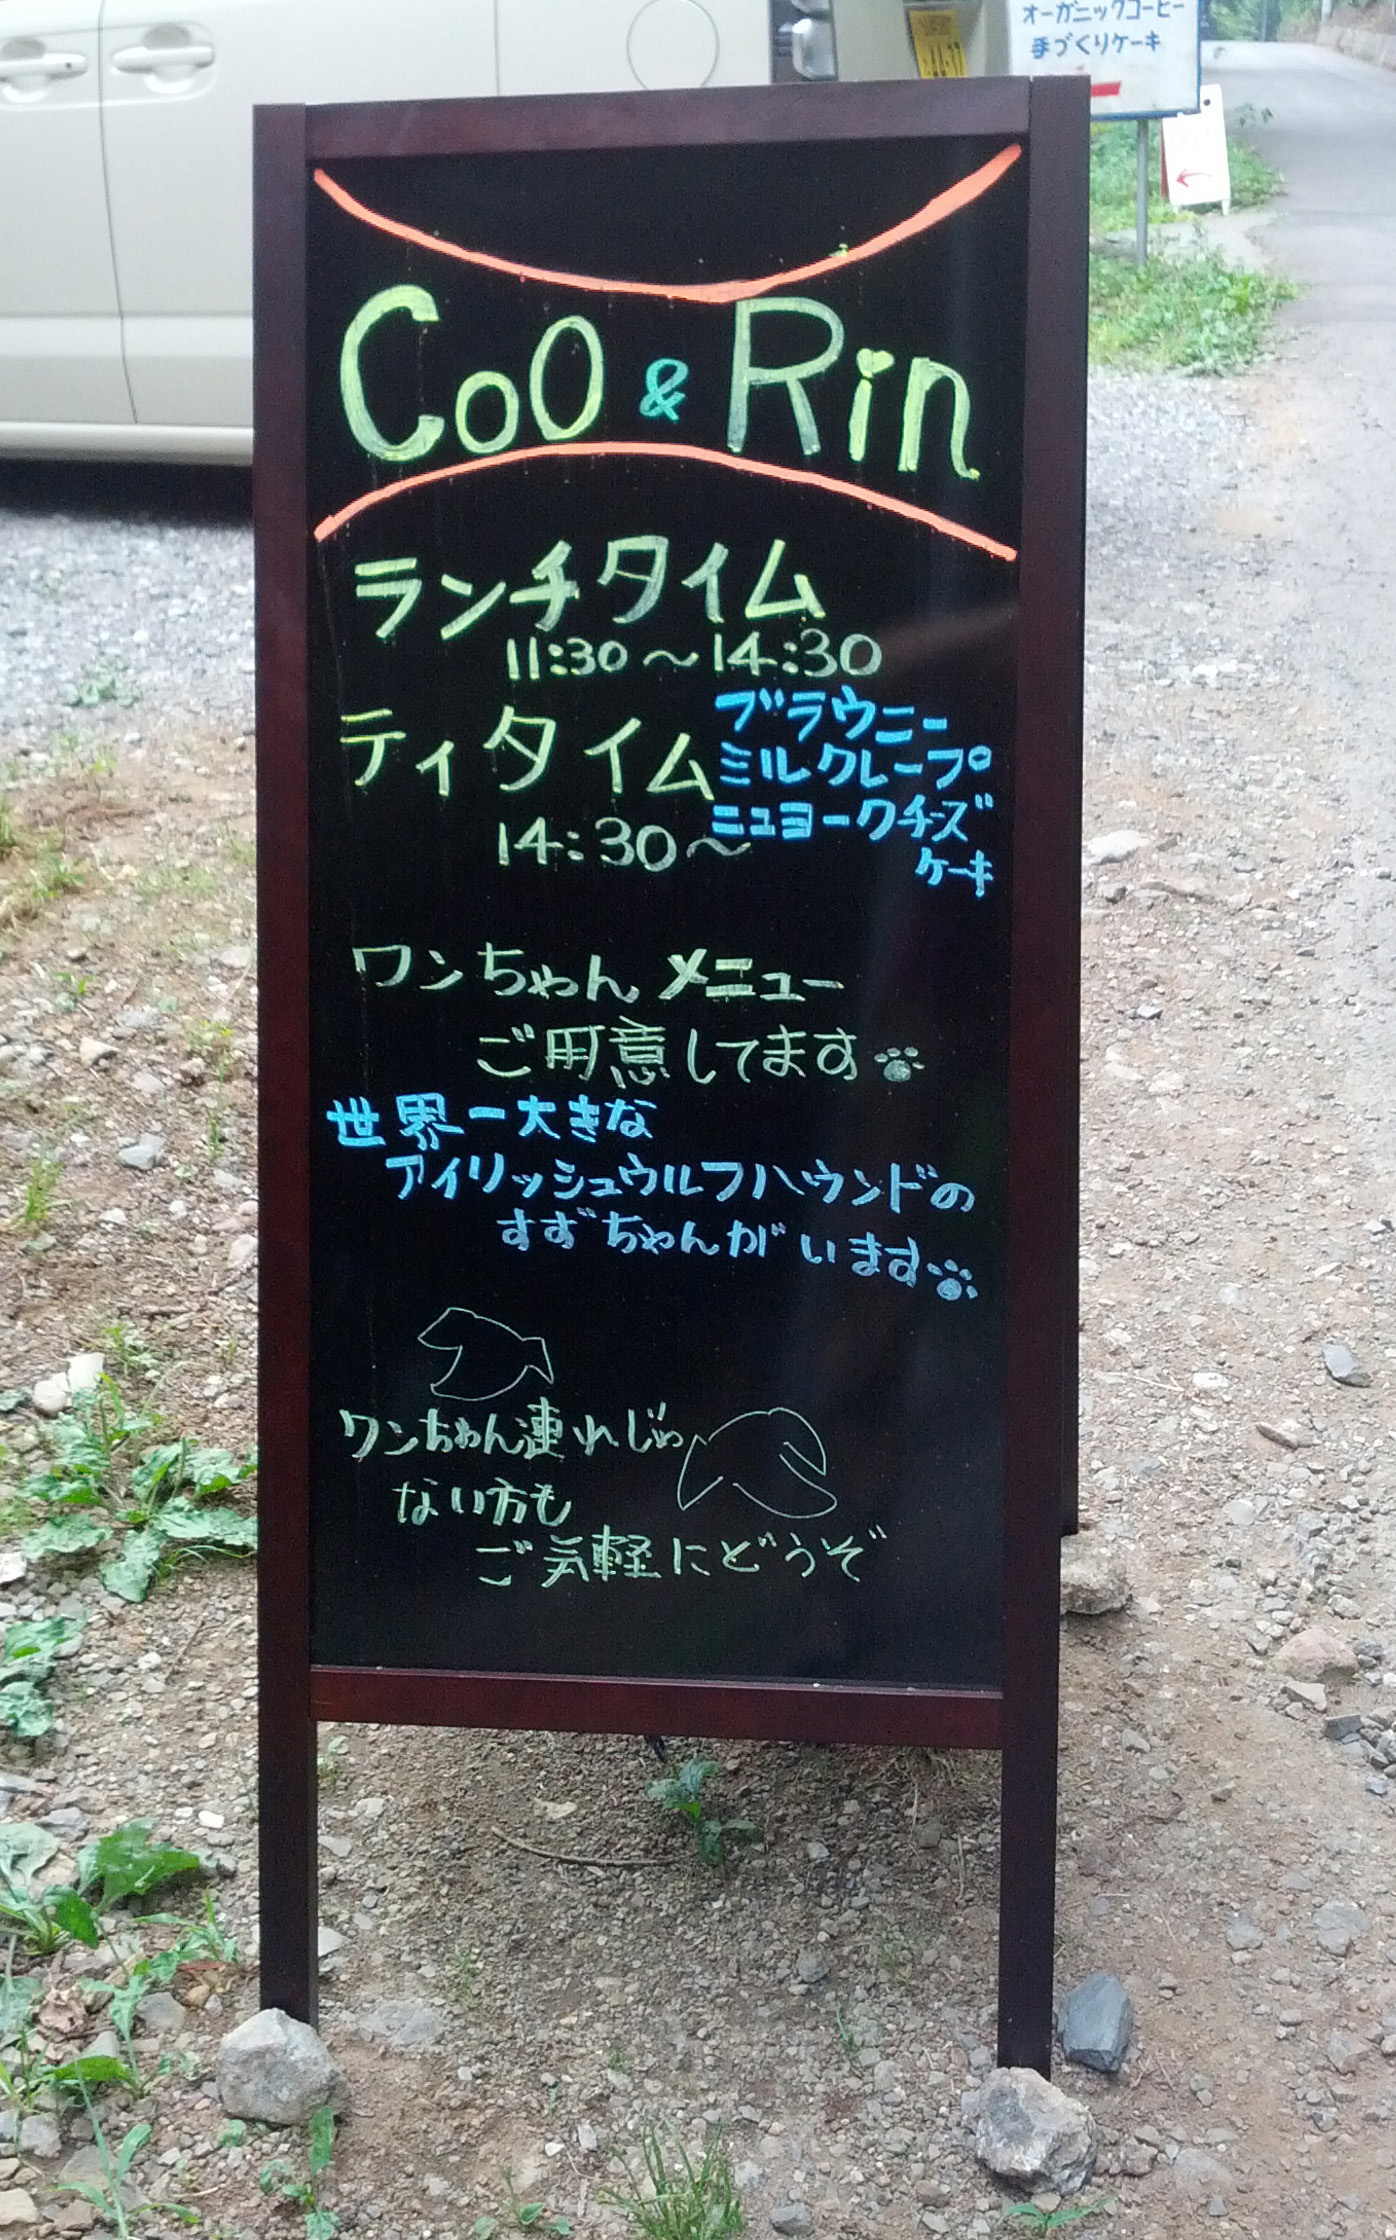 オーガニックコーヒー
手づくりケーキ
CoO & Rin
ランチタイム
11:30～14:30
ティタイム
14:30～
ブラウニー
ミルクレープ
ニューヨークチーズ
ケーキ
ワンちゃんメニュー
ご用意してます
世界一大きな
アイリッシュウルフハウンドの
すずちゃんがいます
ワンちゃん連れじゃ
ない方も
ご気軽にどうぞ